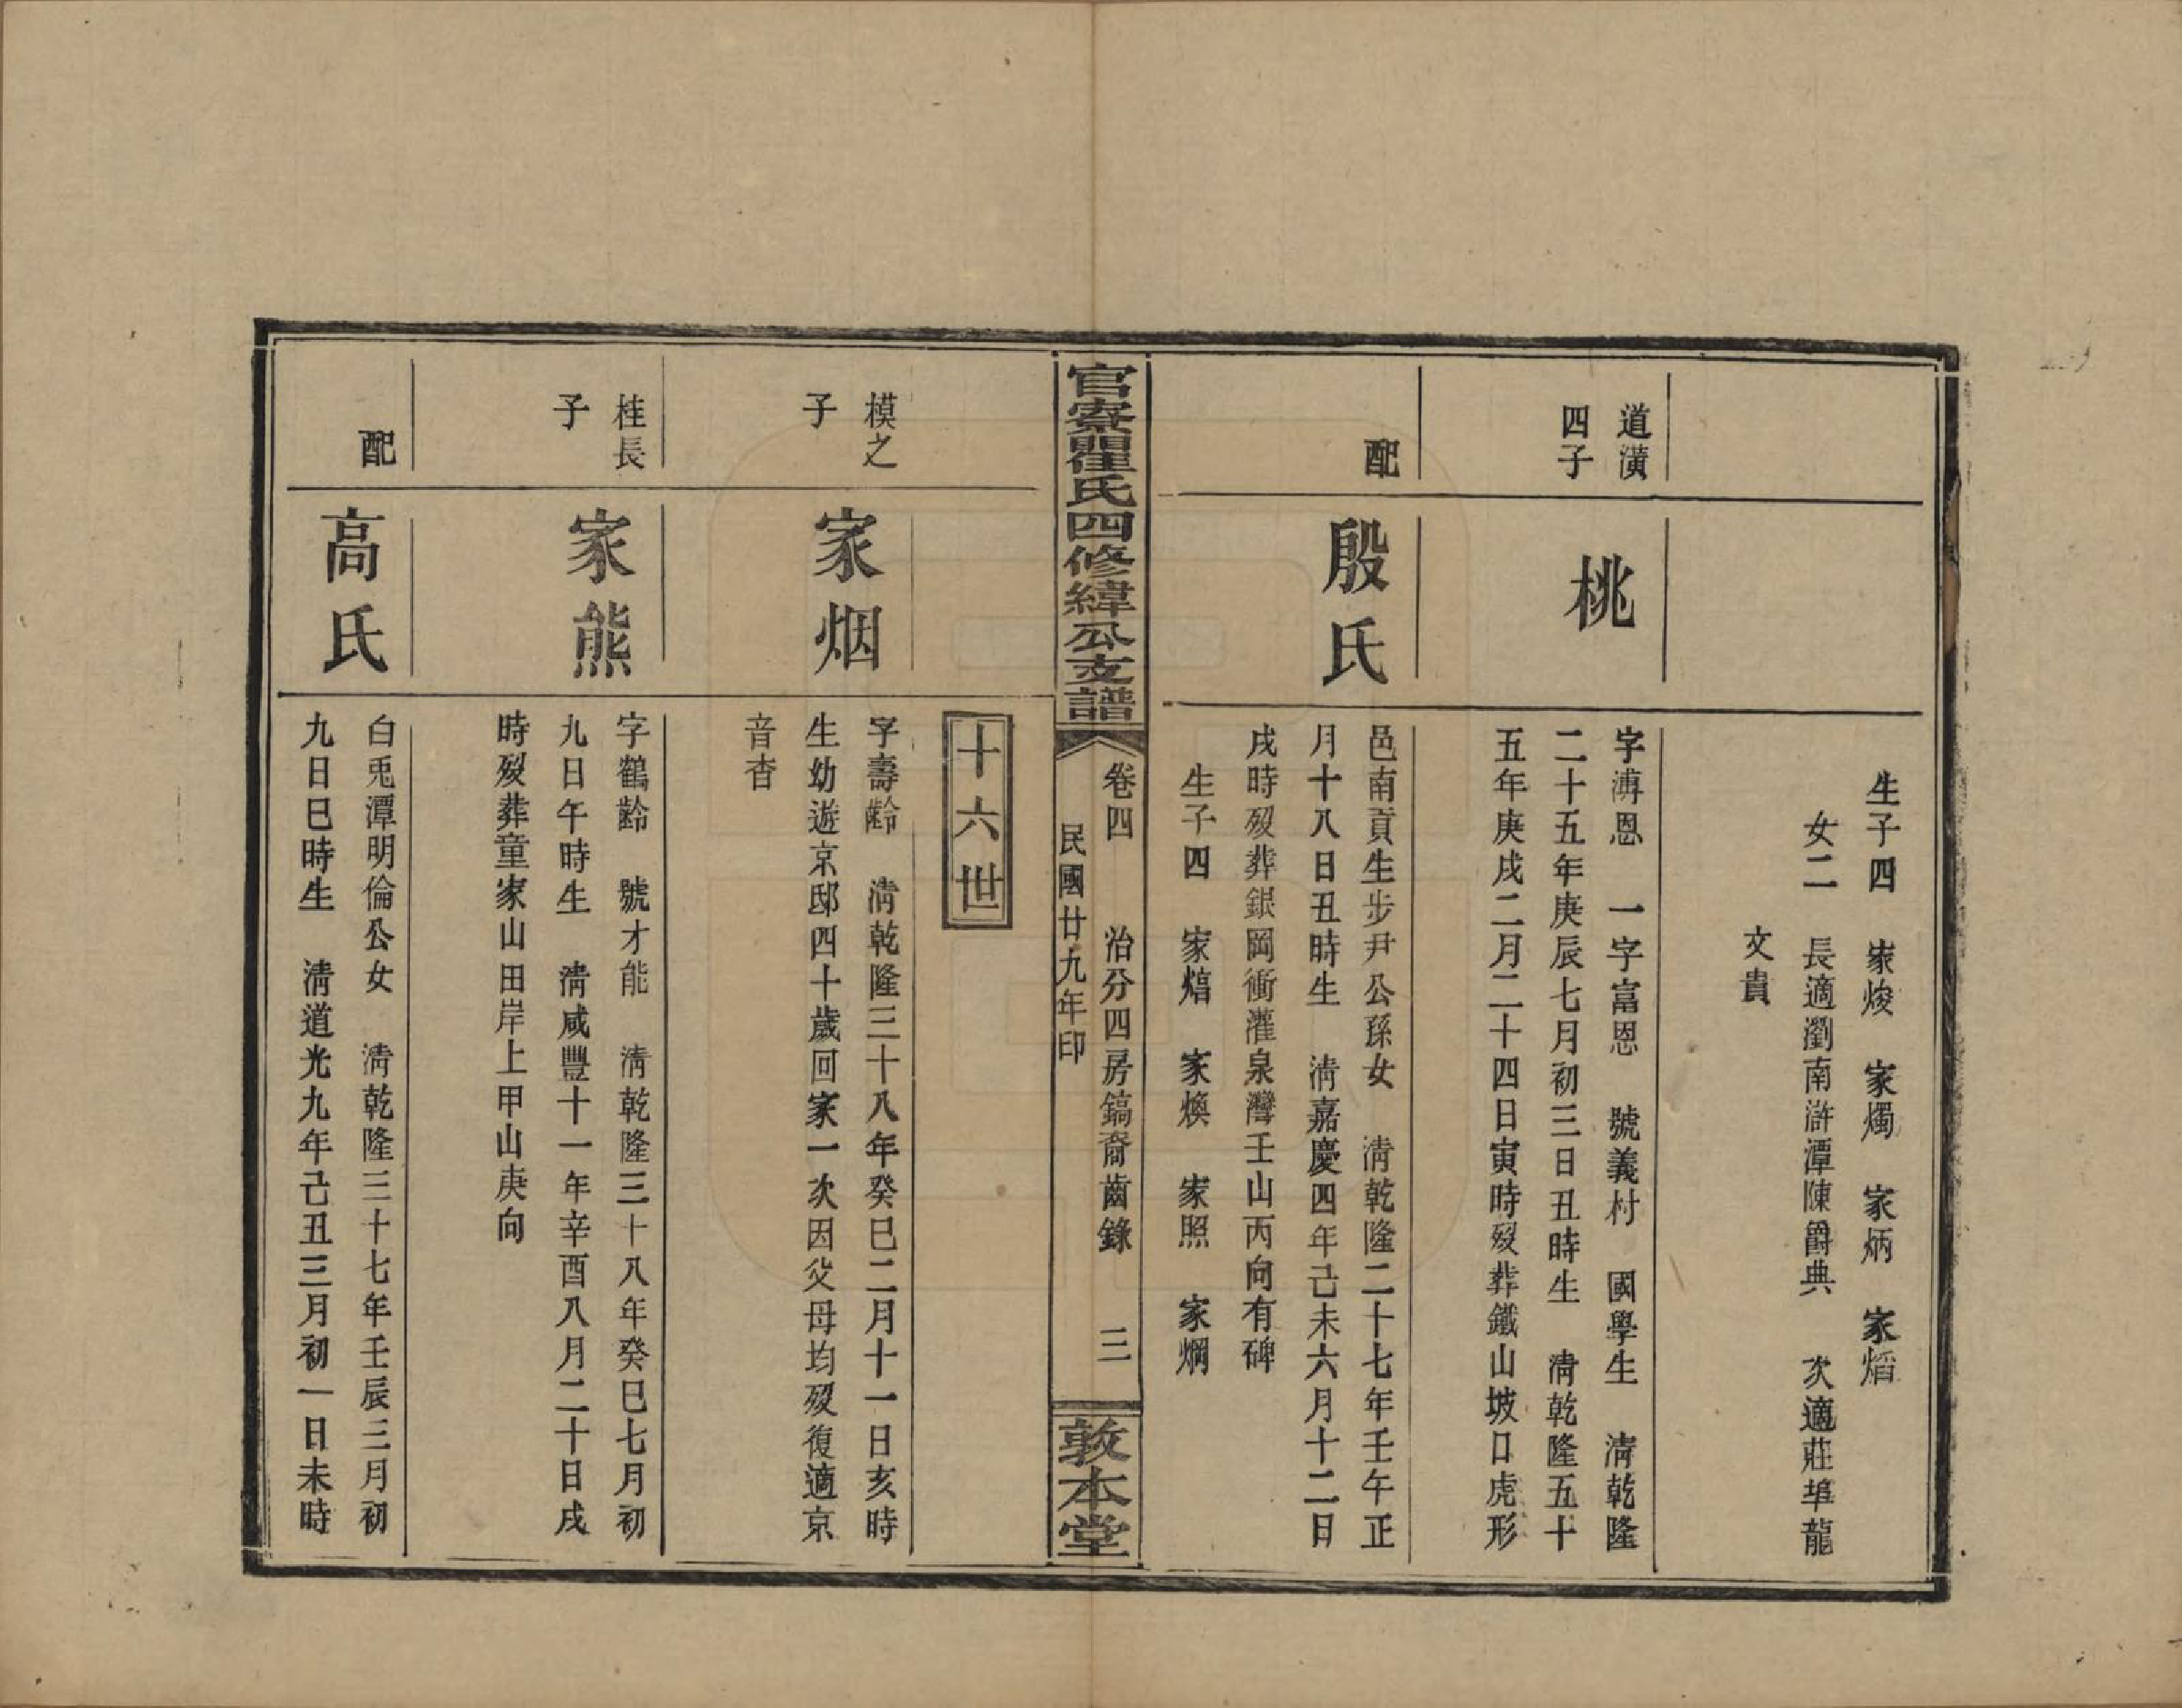 生子四 家焌 家燭 家炳 家熖
女二 長適瀏南滸潭陳爵典 次適莊埠龍
文貴
道潢
四子
桃
字溥恩 一字富恩 號義村 國學生 清乾隆
二十五年庚辰七月初三日丑時生 清乾隆五十
五年庚戌二月二十四日寅時歿葬鐵山坡口虎形
配
殷氏
邑南貢生步尹公孫女 清乾隆二十七年壬午正
月十八日丑時生 清嘉慶四年己未六月十二日
戌時歿葬銀岡衝灌泉灣壬山丙向有碑
生子四 家熺 家煥 家照 家烱
官寮瞿氏四修緯公支譜
卷四 治分四房鎬裔齒錄 三
民國廿九年印
敦本堂
十六世
模之
子
家烟
字壽齡 清乾隆三十八年癸巳二月十一日亥時
生幼遊京邸四十歲回家一次因父母均歿復適京
音杳
桂長
子
家熊
字鶴齡 號才能 清乾隆三十八年癸巳七月初
九日午時生 清咸豐十一年辛酉八月二十日戌
時歿葬童家山田岸上甲山庚向
配
高氏
白兎潭明倫公女 清乾隆三十七年壬辰三月初
九日巳時生 清道光九年己丑三月初一日未時